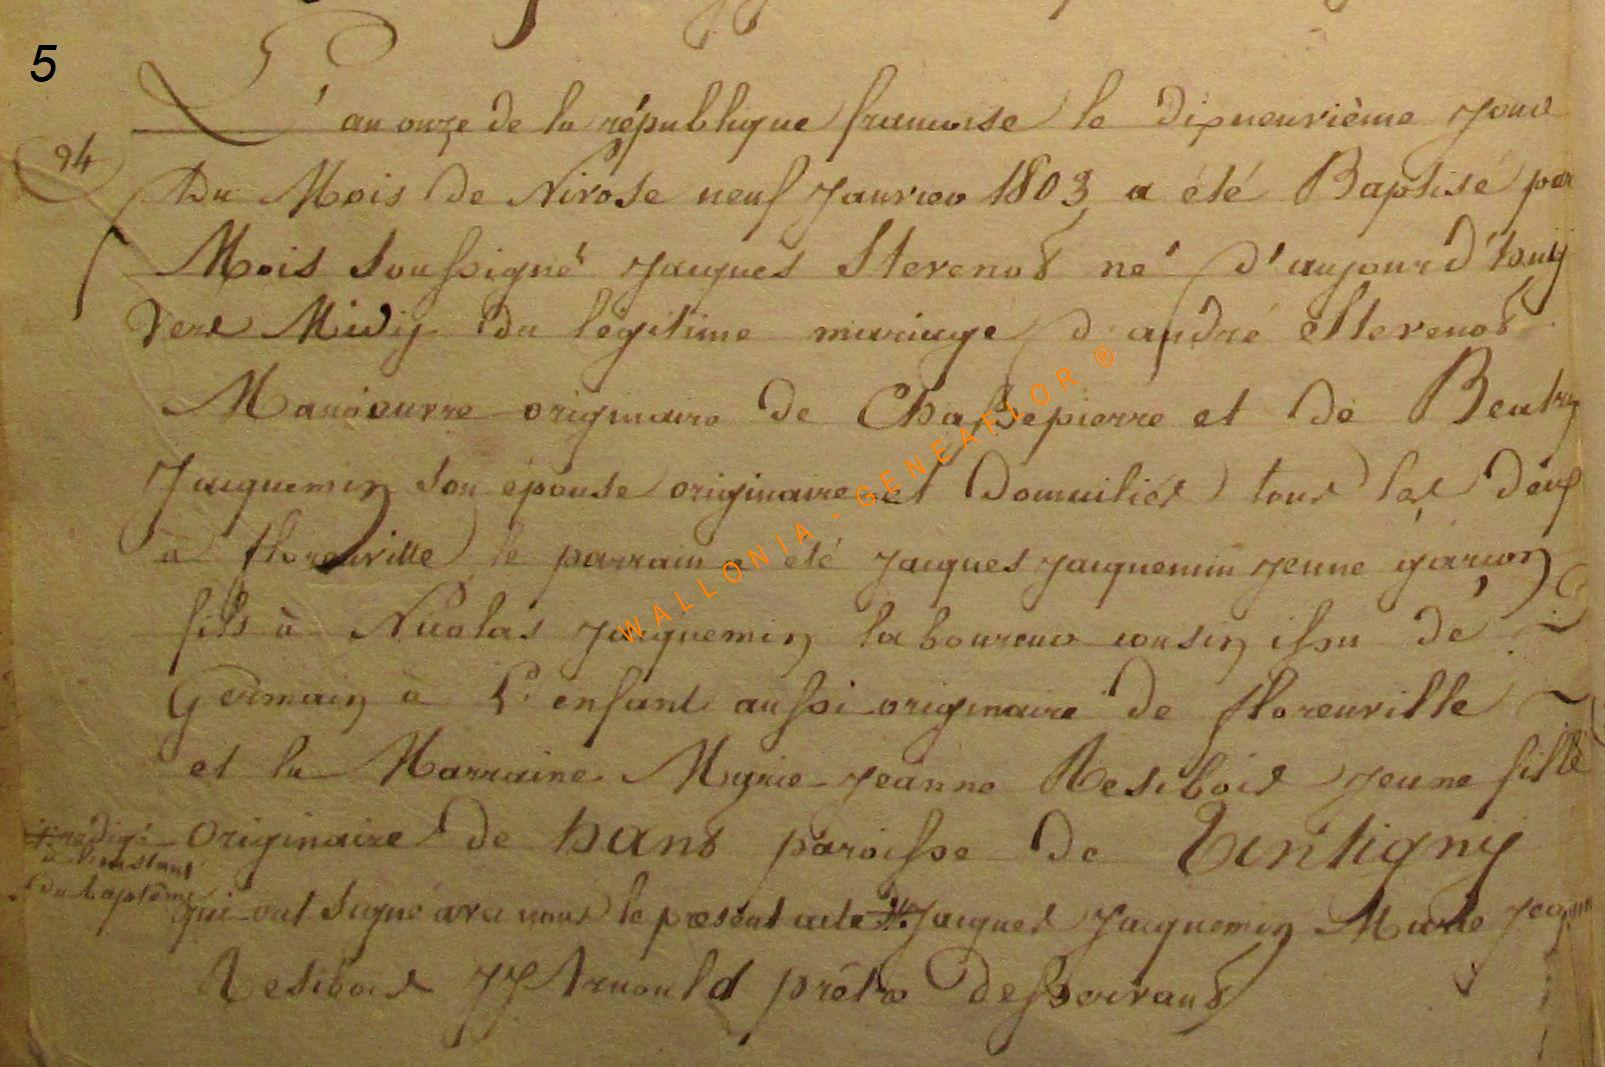 5
94
L'an onze de la république francoise le dixneuvième jour
Du Mois de Nivose neuf Janvier 1803 a été Baptisé par
Mois soussigné Jacques Stevenot né d'aujourd'huij
vers Midij du légitime mariage d'andré Stevenot
Manoeuvre originaire de Chassepierre et de Beatrij
Jacquemin son épouse originaire et Domiciliés tous les deux
à florenville le parrain a été Jacques Jacquemin jeune garcon
fils à Nicolas Jacquemin laboureur cousin issu de
Germain à L'enfant aussi originaire de florenville
et la Marraine Marie Jeanne Resibois jeune fille
Originaire de hans paroisse de Tintigny
+ redigé
à l'instant
du baptême
qui ont signé avec nous le présent acte Jacques Jacquemin Marie Jeanne
Resibois JJ Arnould prêtre desservant
WALLONIA - GENEAFLOR ®